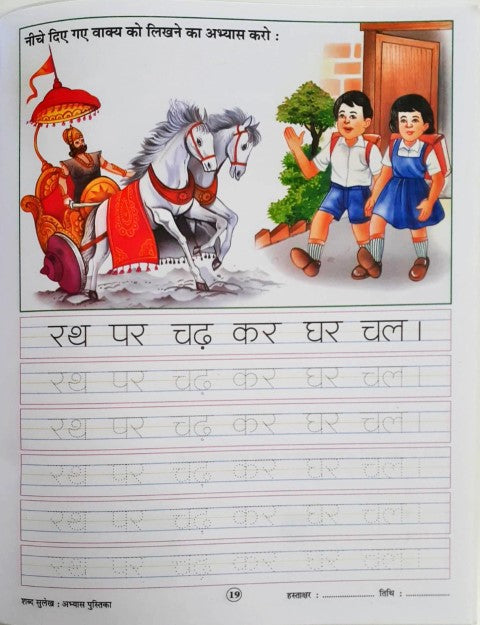 नीचे दिए गए वाक्य को लिखने का अभ्यास करो :
रथ पर चढ़ कर घर चल ।
रथ पर चढ़ कर घर चल ।
रथ पर चढ़ कर घर चल ।
रथ पर चढ़ कर घर चल ।
रथ पर चढ़ कर घर चल ।
रथ पर चढ़ कर घर चल ।
शब्द सुलेख : अभ्यास पुस्तिका 19 हस्ताक्षर : .................... तिथि : ................